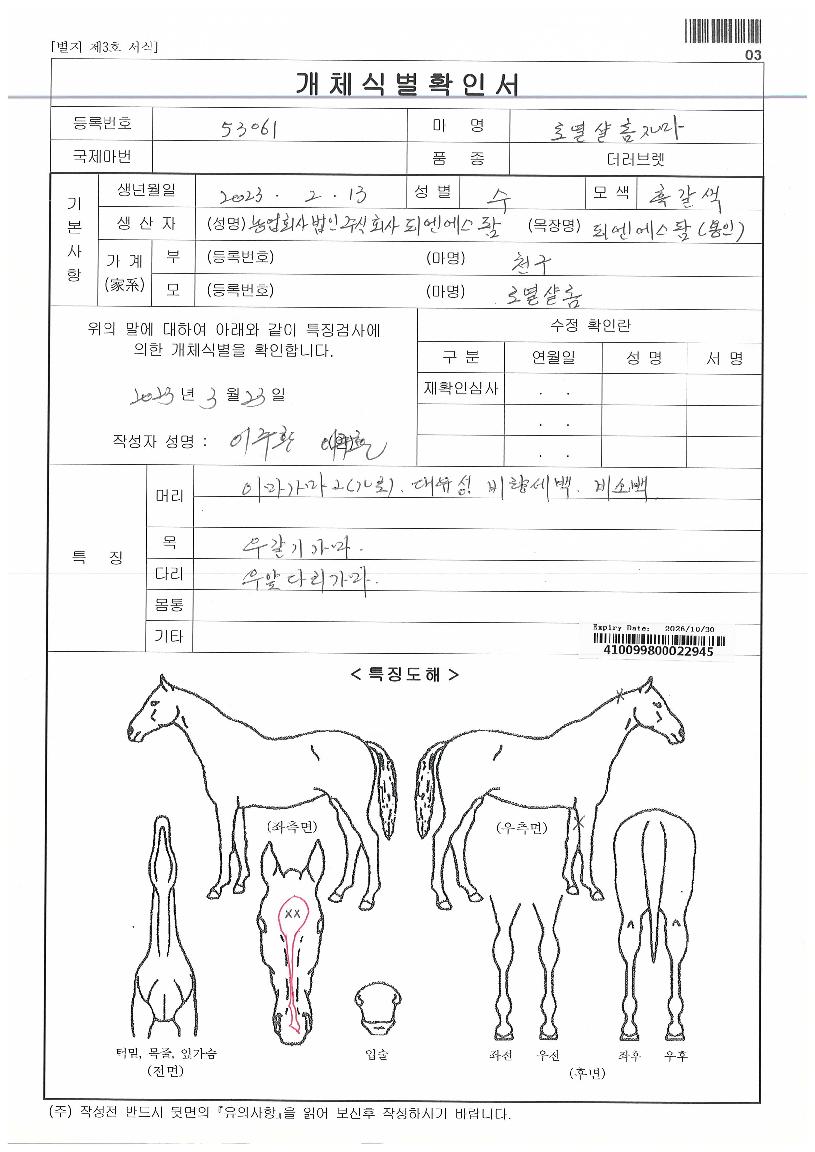 [별지 제3호 서식]
03
개체식별확인서
등록번호 53061 마 명 로열샬롬자마
국제마번 품 종 더러브렛
기본사항
생년월일 2023 . 2 . 13 성 별 수 모 색 흑갈색
생 산 자 (성명) 농업회사법인주식회사 피엔에스팜 (목장명) 피엔에스팜(용인)
가 계 (家系)
부 (등록번호) (마명) 천구
모 (등록번호) (마명) 로열샬롬
위의 말에 대하여 아래와 같이 특징검사에
의한 개체식별을 확인합니다.
2023 년 3 월 23 일
작성자 성명 : 이주환
수정 확인란
구 분 연월일 성 명 서 명
재확인심사 . .
. .
. .
특 징
머리 이마가마2(가로). 대유성 비량세백. 비소백
목 우갈기가마.
다리 우앞다리가마.
몸통
기타
Expiry Date: 2026/10/30
410099800022945
< 특징도해 >
(좌측면) (우측면)
턱밑, 목줄, 앞가슴
(전면)
입술
좌전 우전 좌후 우후
(후면)
(주) 작성전 반드시 뒷면의 『유의사항』을 읽어 보신후 작성하시기 바랍니다.